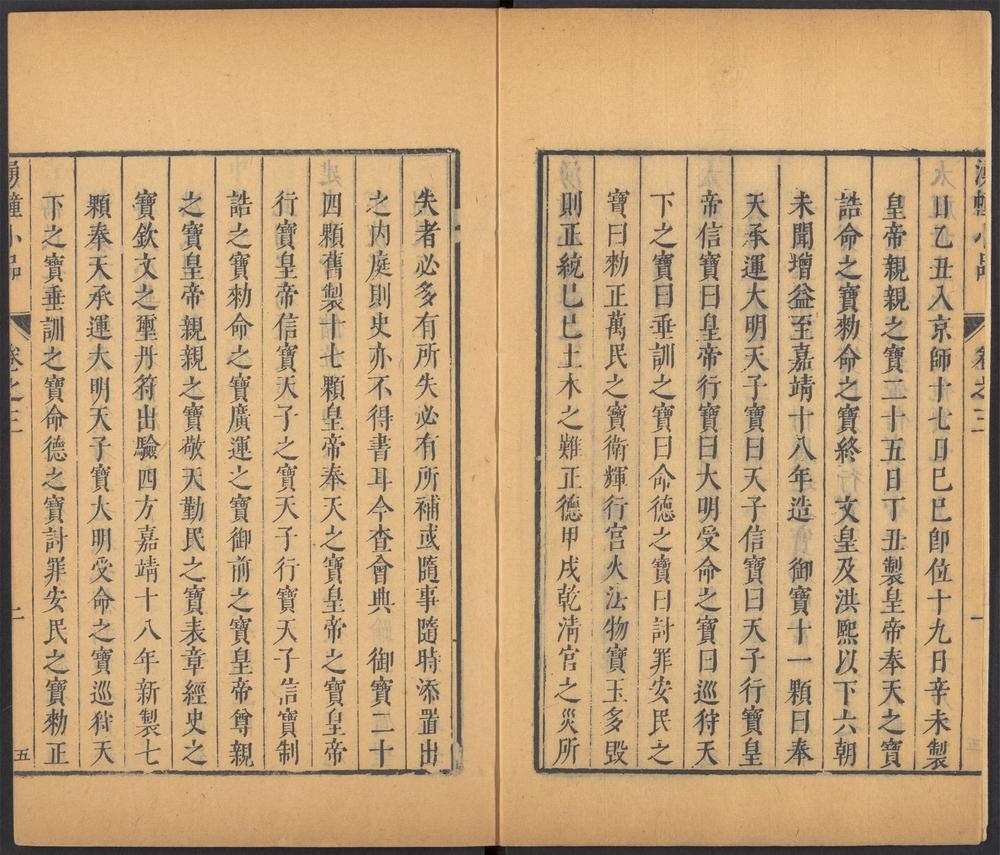 湧幢小品 卷之三 一
日乙丑入京師十七日己巳卽位十九日辛未製
皇帝親親之寶二十五日丁丑製皇帝奉天之寶
誥命之寶勑命之寶終 文皇及洪熙以下六朝
未聞增益至嘉靖十八年造 御寶十一顆曰奉
天承運大明天子寶曰天子信寶曰天子行寶皇
帝信寶曰皇帝行寶曰大明受命之寶曰巡狩天
下之寶曰垂訓之寶曰命德之寶曰討罪安民之
寶曰勑正萬民之寶衛輝行宮火法物寶玉多毀
則正統己巳土木之難正德甲戌乾淸宮之災所
失者必多有所失必有所補或隨事隨時添置出
之内庭則史亦不得書耳今查會典 御寶二十
四顆舊製十七顆皇帝奉天之寶皇帝之寶皇帝
行寶皇帝信寶天子之寶天子行寶天子信寶制
誥之寶勑命之寶廣運之寶御前之寶皇帝尊親
之寶皇帝親親之寶敬天勤民之寶表章經史之
寶欽文之璽丹符出驗四方嘉靖十八年新製七
顆奉天承運大明天子寶大明受命之寶巡狩天
下之寶垂訓之寶命德之寶討罪安民之寶勑正
湧幢小品 卷之三 二 五